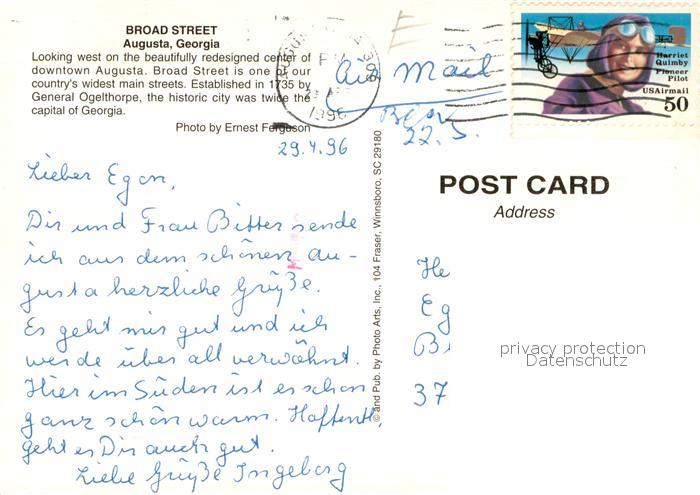 BROAD STREET
Augusta, Georgia
Looking west on the beautifully redesigned center of
downtown Augusta. Broad Street is one of our
country's widest main streets. Established in 1735 by
General Ogelthorpe, the historic city was twice the
capital of Georgia.
Photo by Ernest Ferguson
29.4.96
Lieber Egon,
Dir und Frau Bitter sende
ich aus dem schönen Au-
gusta herzliche Grüße.
Es geht mir gut und ich
werde überall verwöhnt.
Hier im Süden ist es schon
ganz schön warm. Hoffentl.
geht es Dir auch gut.
Liebe Grüße Ingeborg
© and Pub. by Photo Arts, Inc., 104 Fraser, Winnsboro, SC 29180
PM
1996
Air Mail
22.5.
Harriet
Quimby
Pioneer
Pilot
USAirmail
50
POST CARD
Address
He
Eg
Bi
37
privacy protection
Datenschutz